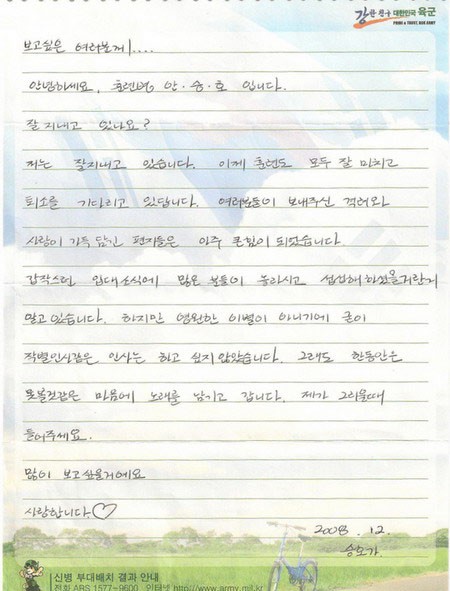 강한 친구 대한민국 육군
PRIDE & TRUST, ROK ARMY
보고싶은 여러분께!....
안녕하세요, 훈련병 안·승·호 입니다.
잘 지내고 있나요?
저는 잘지내고 있습니다. 이제 훈련도 모두 잘 마치고
퇴소를 기다리고 있답니다. 여러분들이 보내주신 격려와
사랑이 가득 담긴 편지들은 아주 큰힘이 되었습니다.
갑작스런 입대소식에 많은 분들이 놀라시고 섭섭해하셨을거란거
알고있습니다. 하지만 영원한 이별이 아니기에 굳이
작별인사같은 인사는 하고 싶지않았습니다. 그래도 한동안은
못볼것같은 마음에 노래를 남기고 갑니다. 제가 그리울때
들어주세요.
많이 보고싶을거에요
사랑합니다♡
2008. 12.
승호가.
신병 부대배치 결과 안내
전화 ARS 1577-9600 인터넷 http://www.army.mil.kr